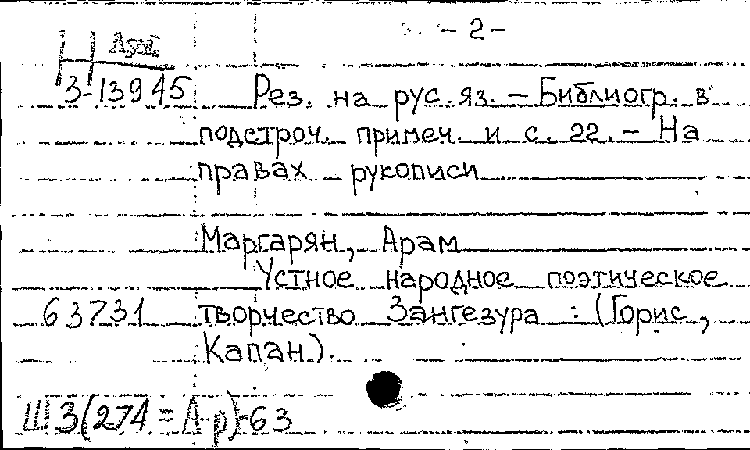 - 2 -
3-13945 Рез. на рус. яз. - Библиогр. в
подстроч. примеч. и с. 22. - На
правах рукописи
Маргарян, Арам
Устное народное поэтическое
63731 творчество Зангезура : (Горис,
Капан).
Ш3(274=Ар)-63